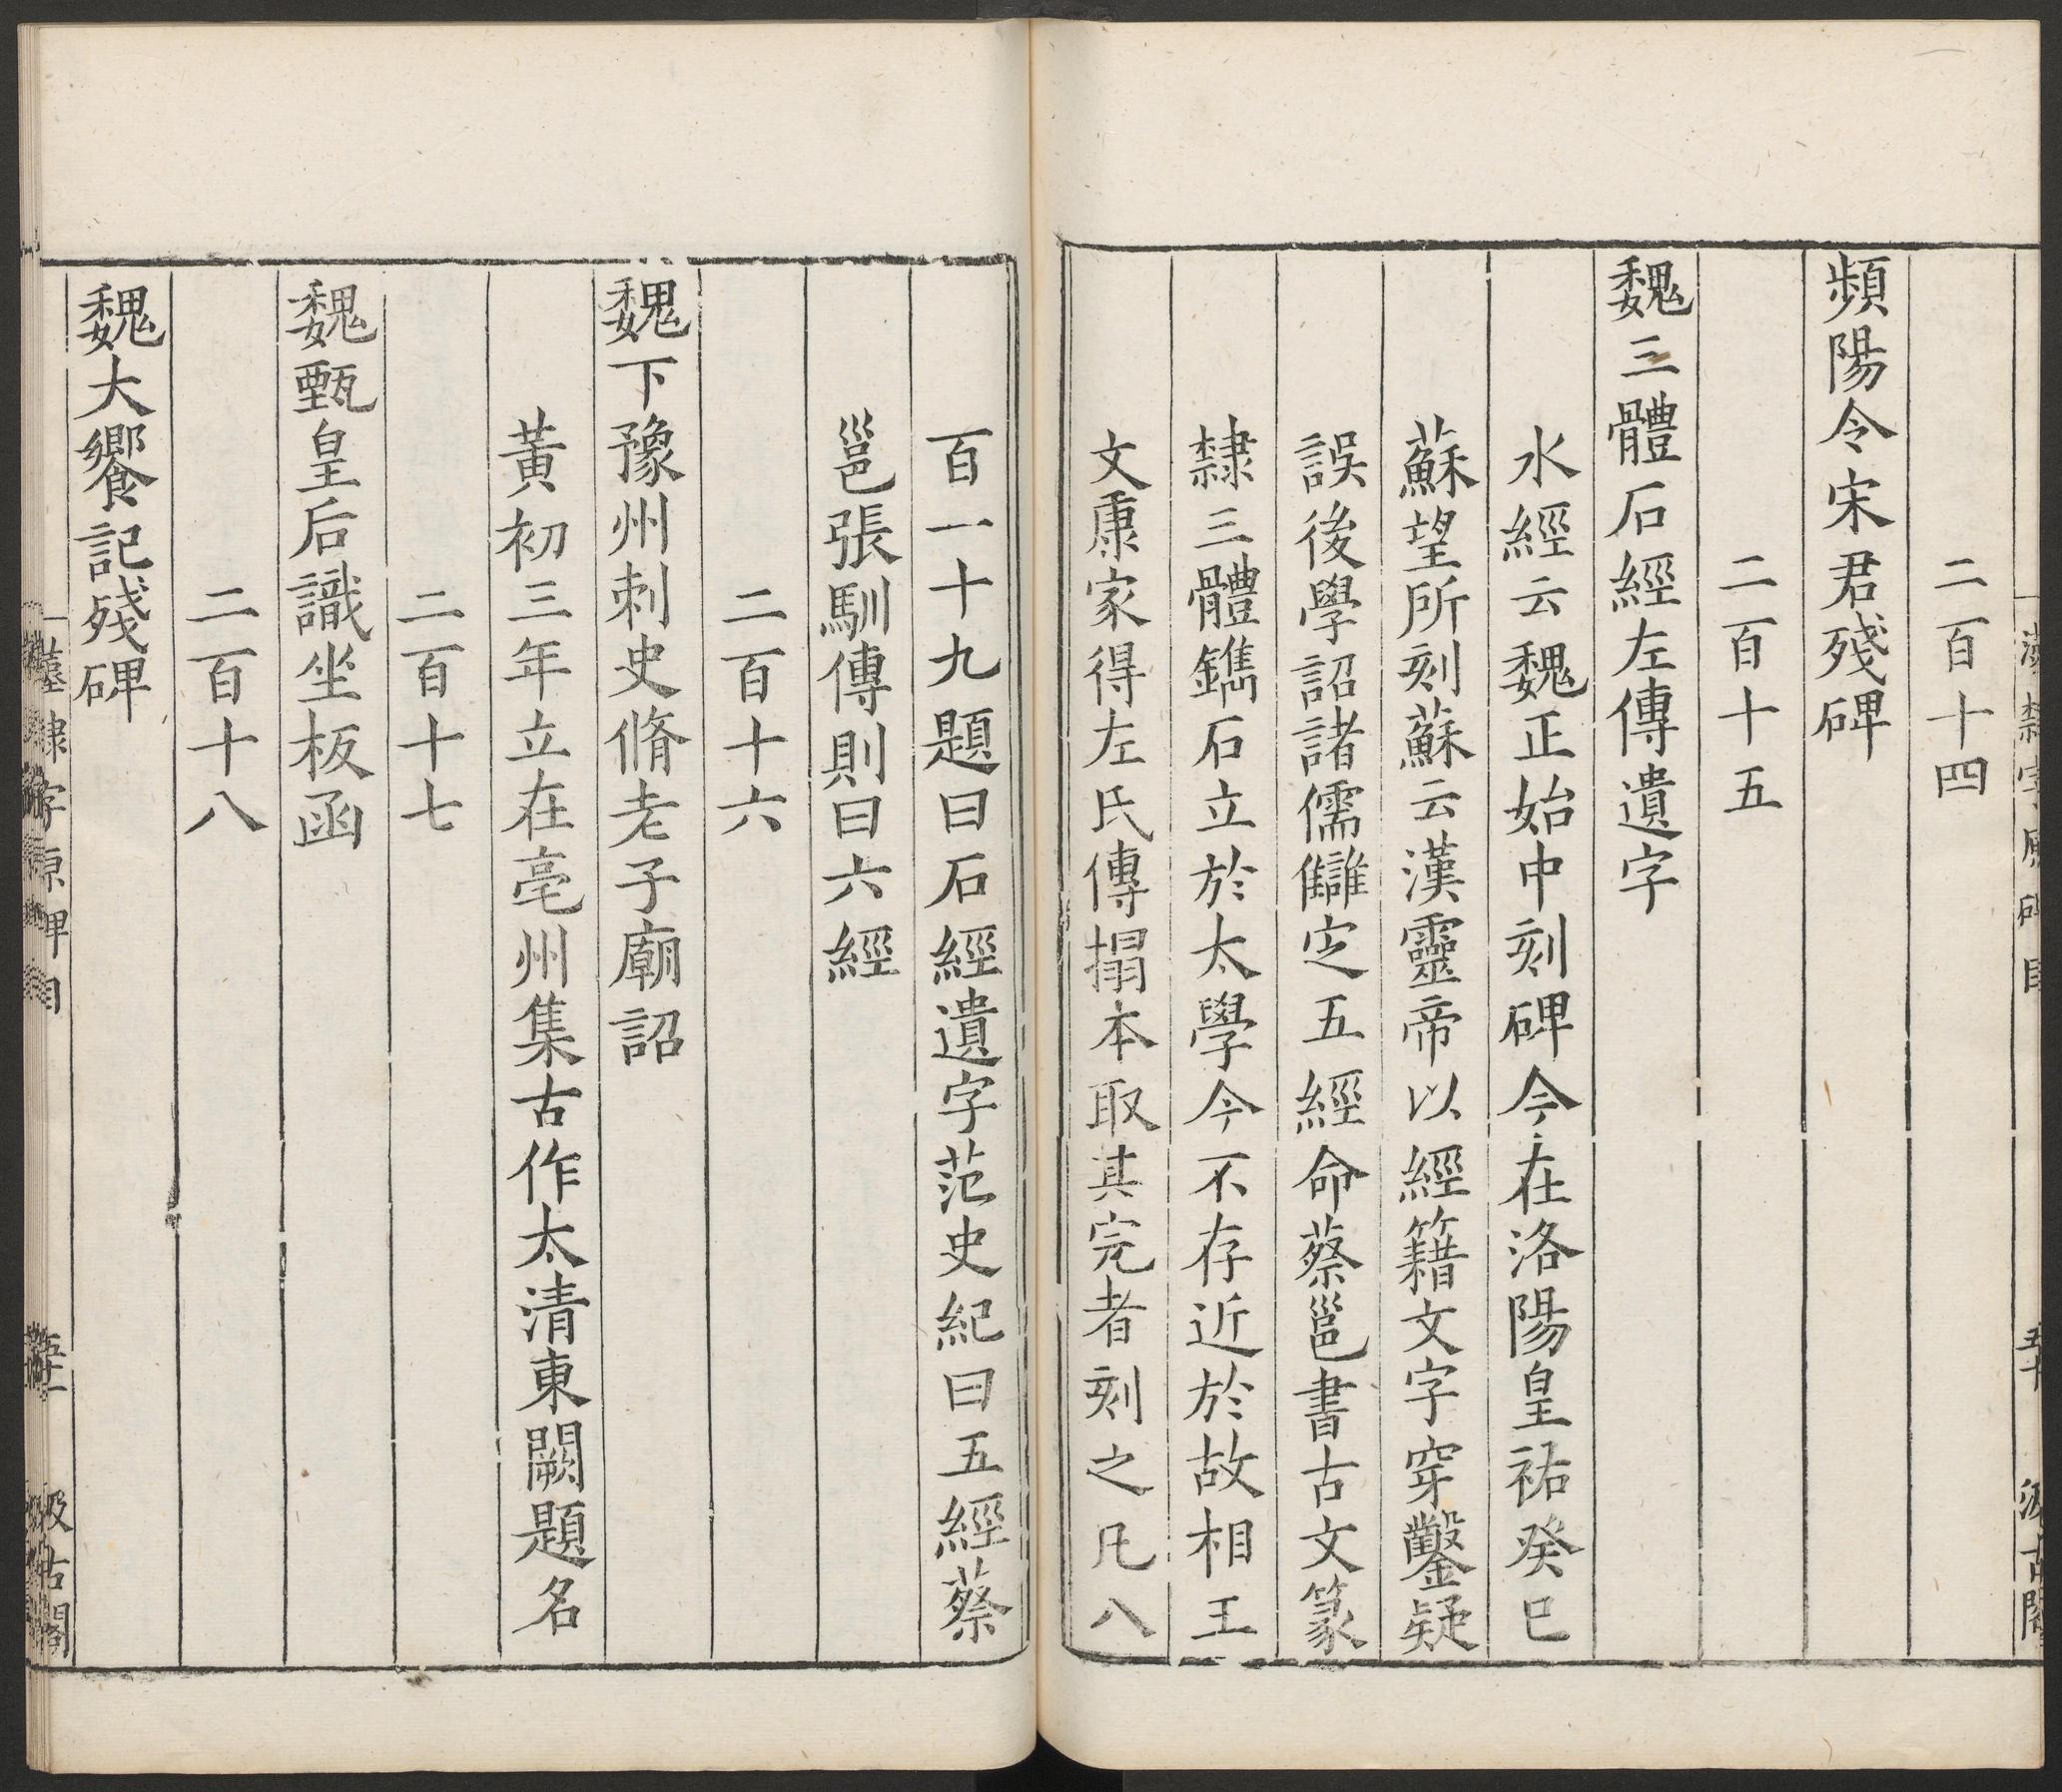 二百十四
頻陽令宋君殘碑
二百十五
魏三體石經左傳遺字
水經云魏正始中刻碑今在洛陽皇祐癸巳
蘇望所刻蘇云漢靈帝以經籍文字穿鑿疑
誤後學詔諸儒讎定五經命蔡邕書古文篆
隸三體鐫石立於太學今不存近於故相王
文康家得左氏傳搨本取其完者刻之凡八
百一十九題曰石經遺字范史紀曰五經蔡
邕張馴傳則曰六經
二百十六
魏下豫州刺史脩老子廟詔
黃初三年立在亳州集古作太清東闕題名
二百十七
魏甄皇后識坐板函
二百十八
魏大饗記殘碑
隸字原碑目
五十一
汲古閣